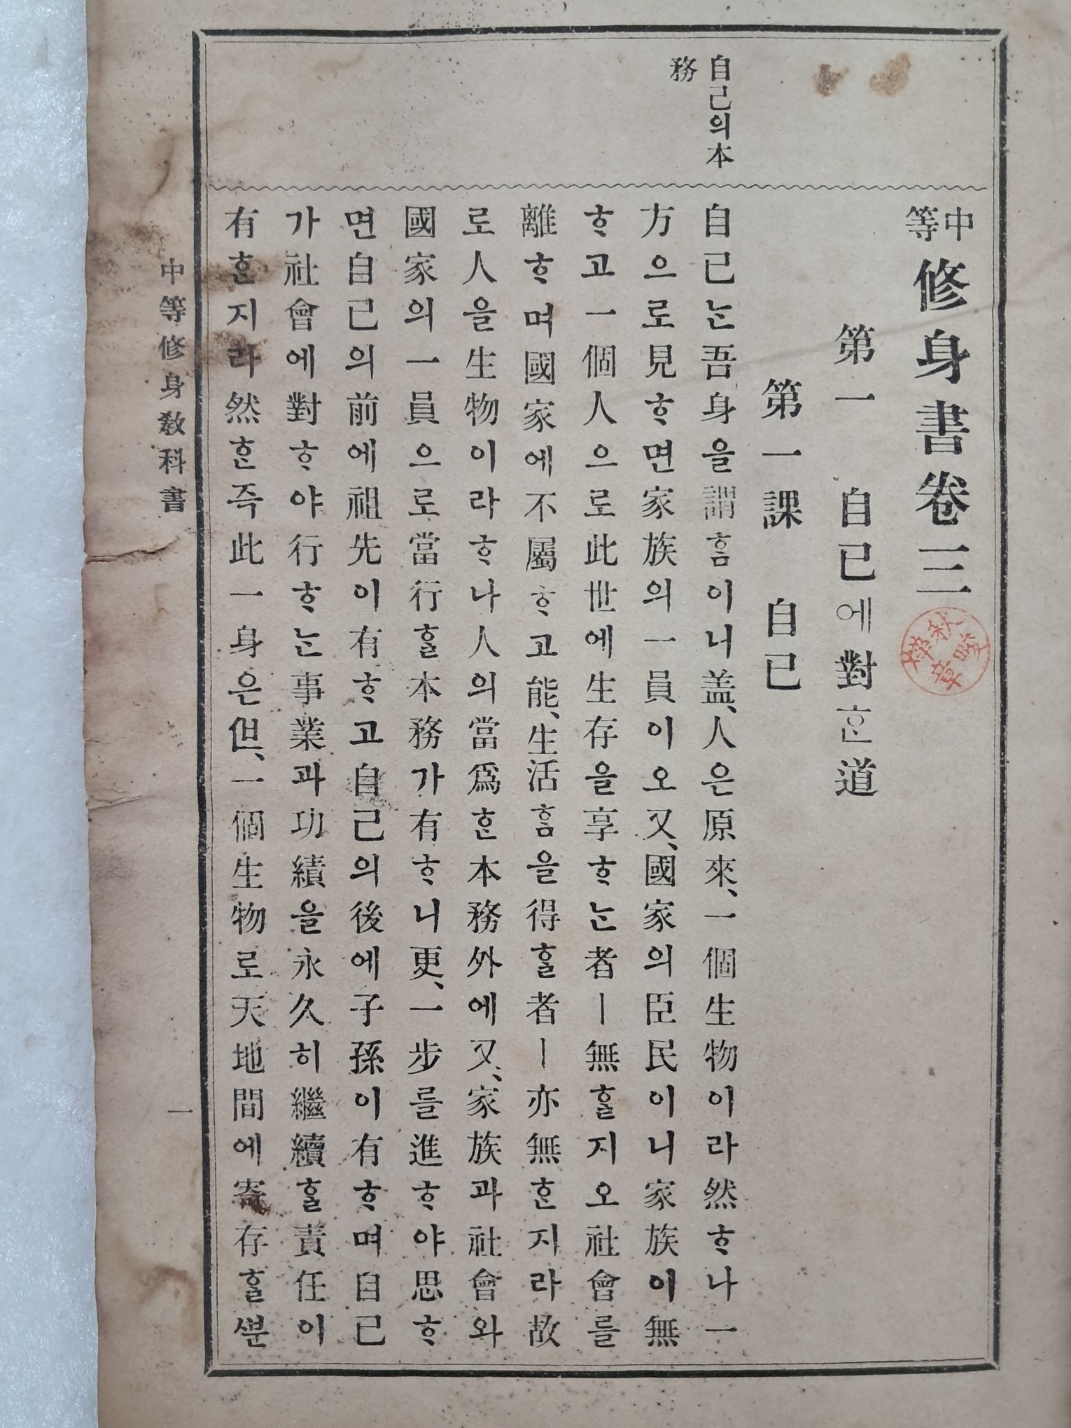 中等 修身書卷三
第一 自己에對ᄒᆞᆫ道
第一課 自己
自己의本
務
自己ᄂᆞᆫ吾身을謂ᄒᆞᆷ이니盖、人은原來、一個生物이라然ᄒᆞ나一
方으로見ᄒᆞ면家族의一員이오又、國家의臣民이니家族이無
ᄒᆞ고一個人으로此世에生存을享ᄒᆞᄂᆞᆫ者ㅣ無ᄒᆞᆯ지오社會를
離ᄒᆞ며國家에不屬ᄒᆞ고能、生活ᄒᆞᆷ을得ᄒᆞᆯ者ㅣ亦無ᄒᆞᆫ지라故
로人을生物이라ᄒᆞ나人의當爲ᄒᆞᆫ本務外에又、家族과社會와
國家의一員으로當行ᄒᆞᆯ本務가有ᄒᆞ니更、一步를進ᄒᆞ야思ᄒᆞ
면自己의前에祖先이有ᄒᆞ고自己의後에子孫이有ᄒᆞ며自己
가社會에對ᄒᆞ야行ᄒᆞᄂᆞᆫ事業과功績을永久히繼續ᄒᆞᆯ責任이
有ᄒᆞᆫ지라然ᄒᆞᆫ즉此一身은但、一個生物로天地間에寄存ᄒᆞᆯᄲᅮᆫ
中等修身敎科書
一